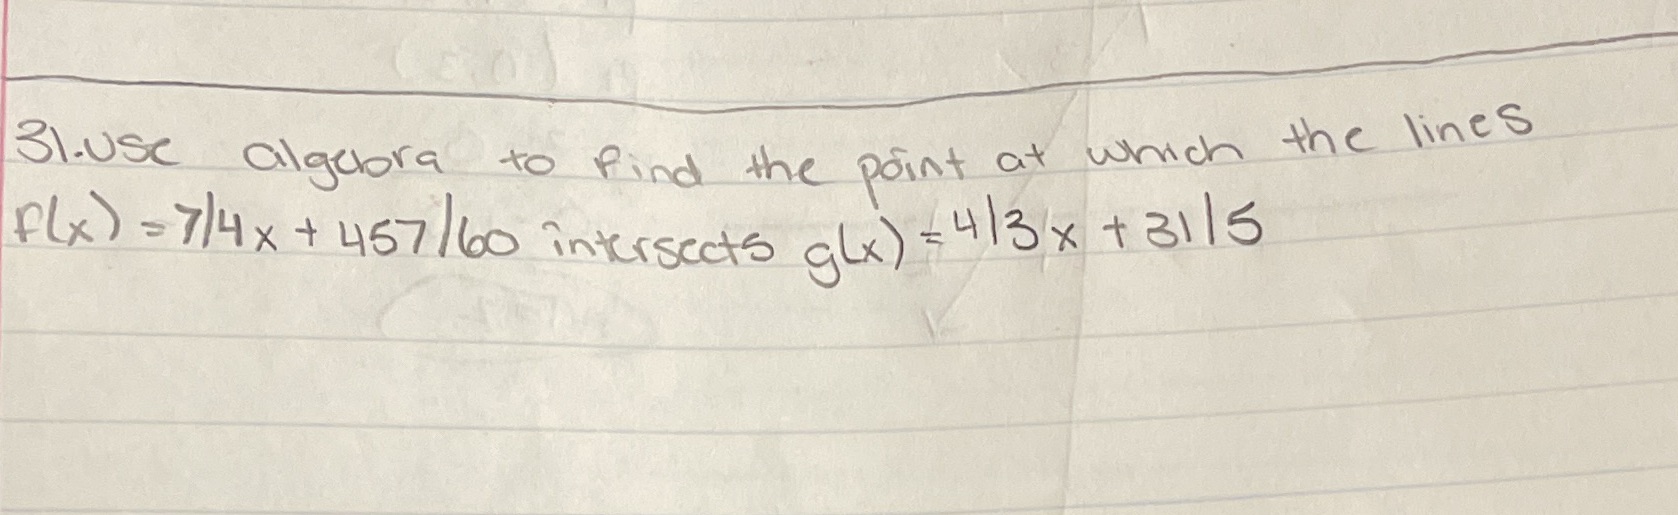 31. use algebra to find the point at which the lines
f(x) = 7/4x + 457/60 intersects g(x) = 4/3x + 31/5